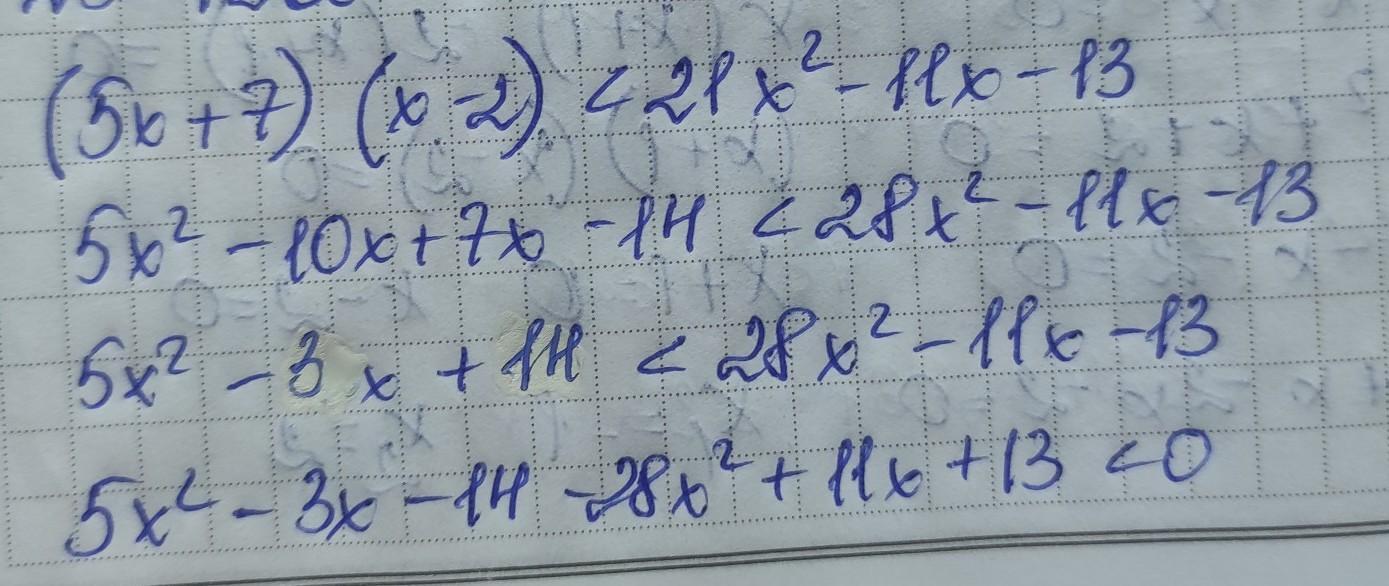 (5x+7) (x-2) < 21x² - 11x - 13
5x² - 10x + 7x - 14 < 28x² - 11x - 13
5x² - 3x + 14 < 28x² - 11x - 13
5x² - 3x - 14 - 28x² + 11x + 13 < 0